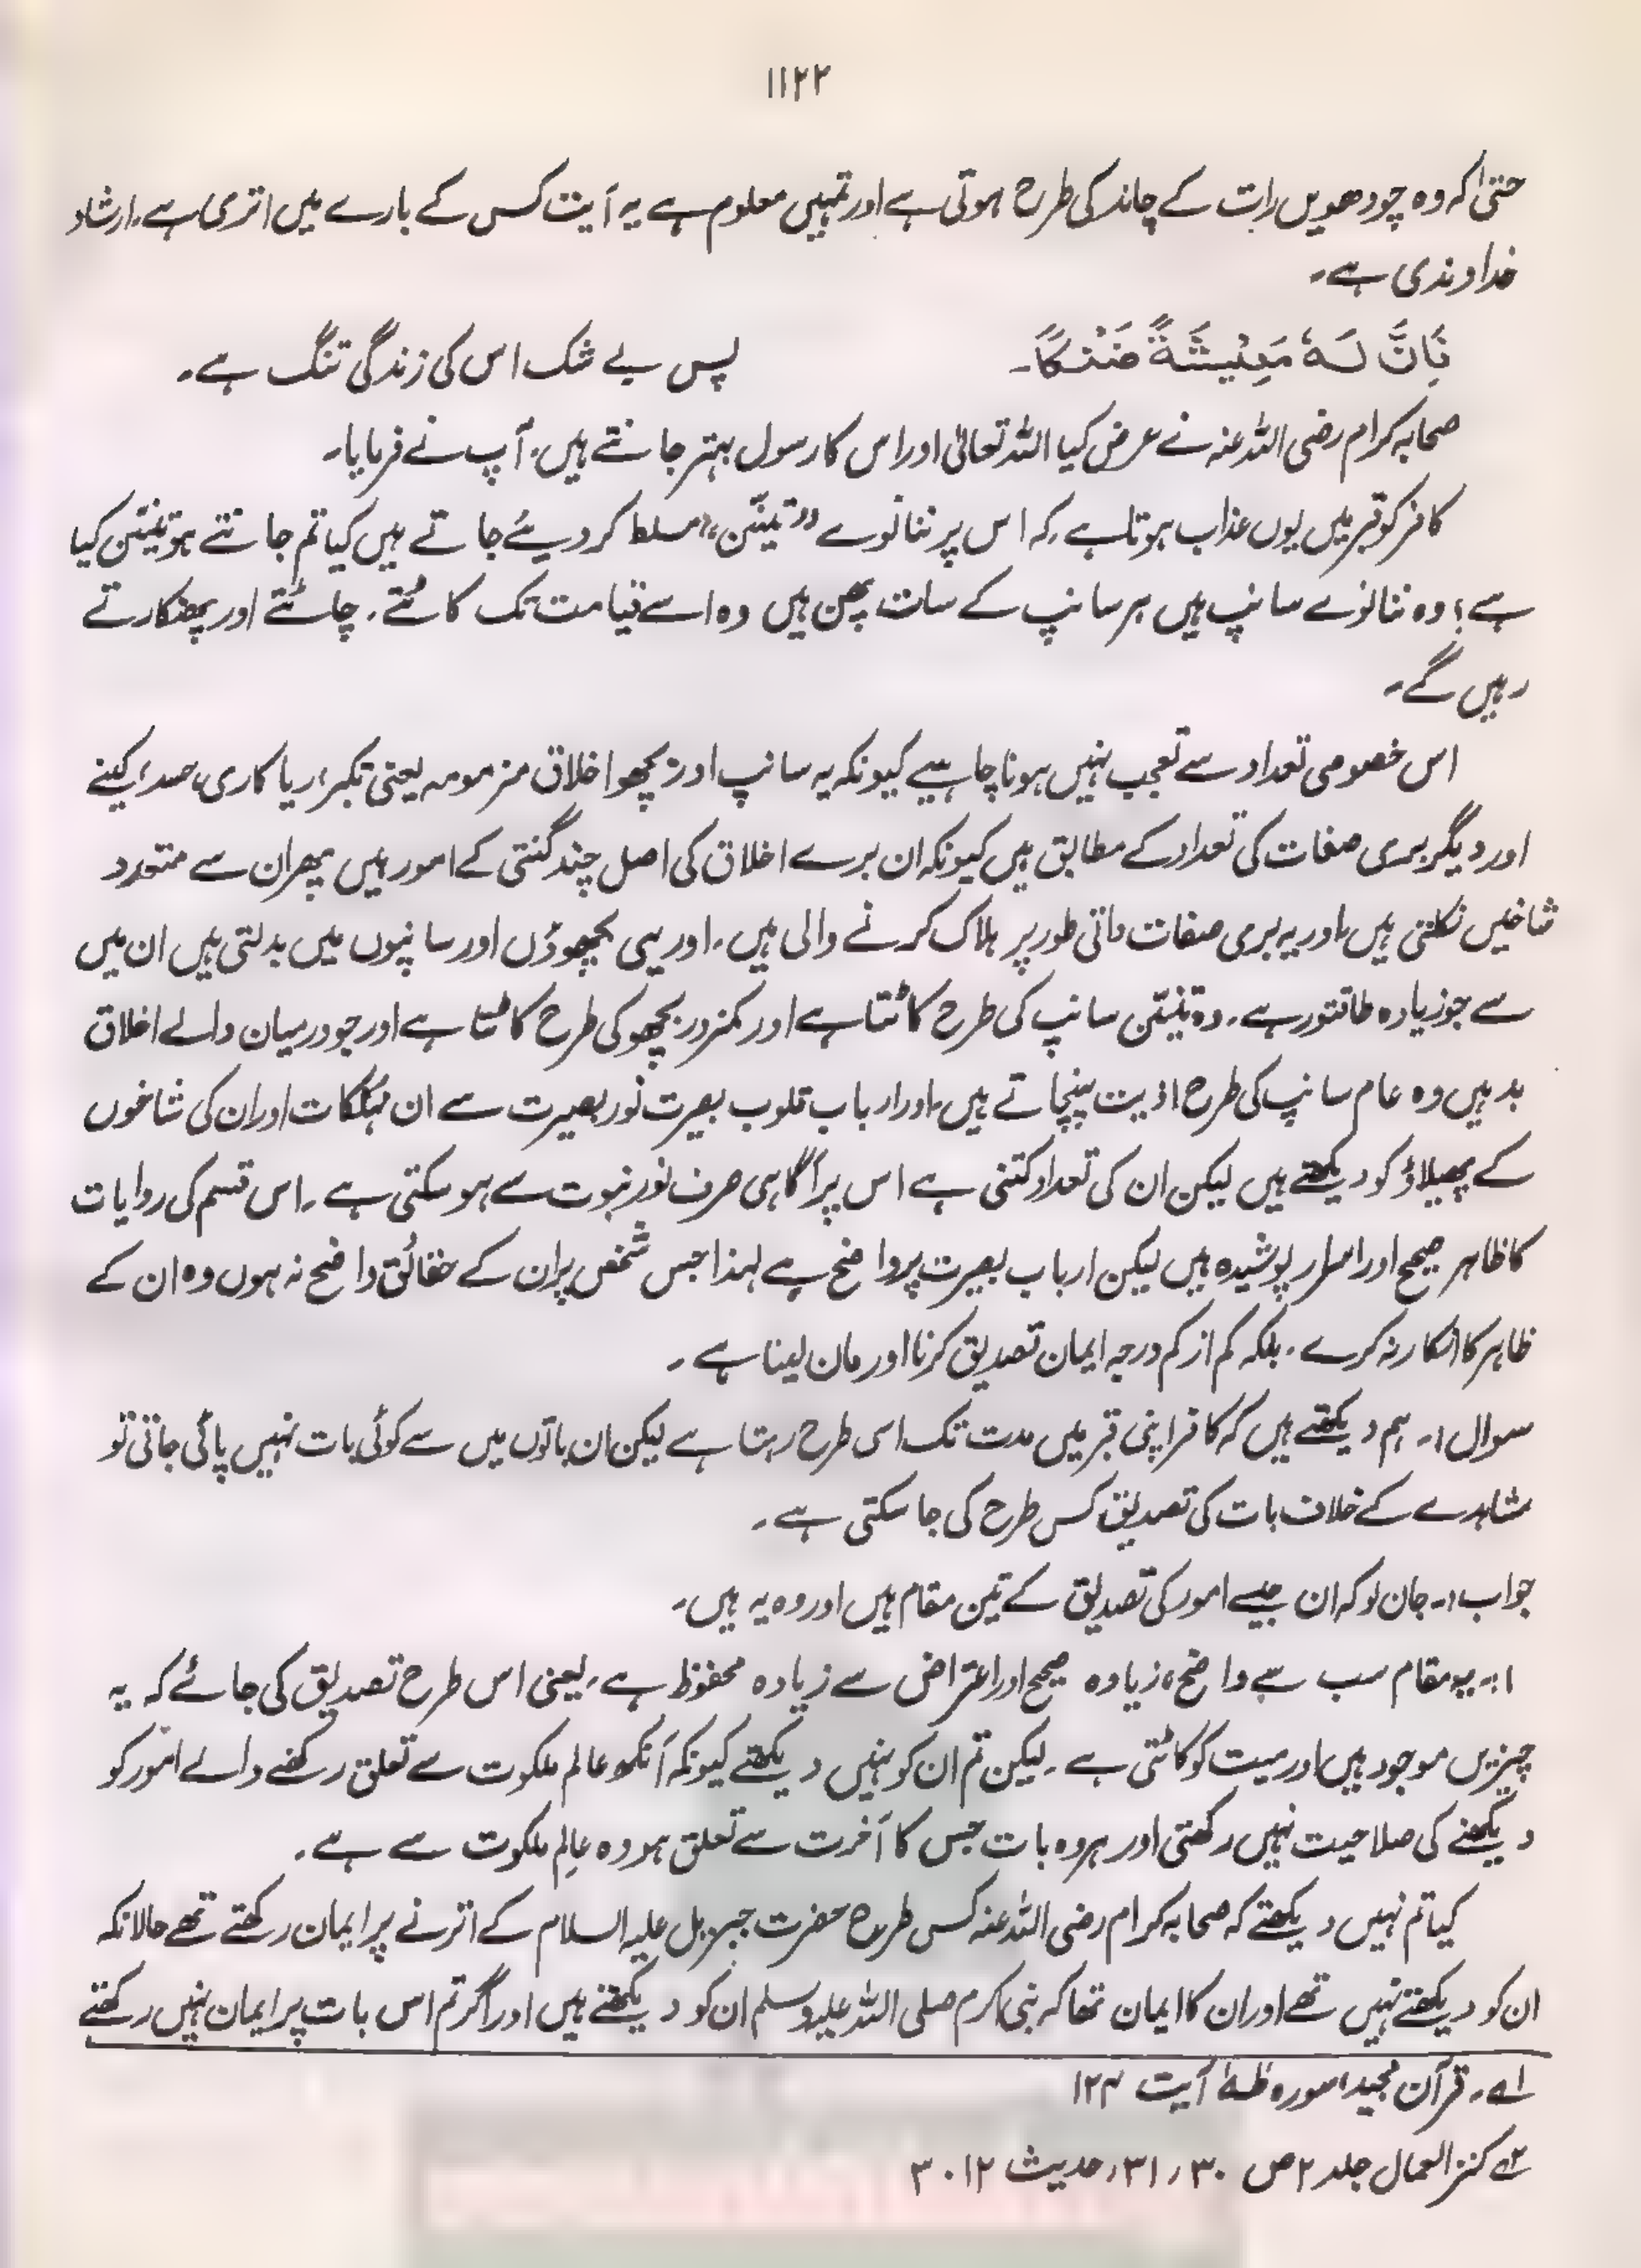 ۱۱۲۲
حتیٰ کہ وہ چودھویں رات کے چاند کی طرح ہوتی ہے اور تمہیں معلوم ہے یہ آیت کس کے بارے میں اتری ہے، ارشاد
خداوندی ہے۔
فَاِنَّ لَہٗ مَعِیْشَۃً ضَنْکًا۔ پس بے شک اس کی زندگی تنگ ہے۔
صحابہ کرام رضی اللہ عنہ نے عرض کیا اللہ تعالیٰ اور اس کا رسول بہتر جانتے ہیں، آپ نے فرمایا۔
کافر کو قبر میں یوں عذاب ہوتا ہے، کہ اس پر ننانوے "تینّن" مسلط کر دیئے جاتے ہیں کیا تم جانتے ہو تینّن کیا
ہے؟ وہ ننانوے سانپ ہیں ہر سانپ کے سات پھن ہیں وہ اسے قیامت تک کاٹتے، چاٹتے اور پھنکارتے
رہیں گے۔
اس خصوصی تعداد سے تعجب نہیں ہونا چاہیے کیونکہ یہ سانپ اور بچھو اخلاق مذمومہ یعنی تکبر، ریا کاری، حسد، کینے
اور دیگر بری صفات کی تعداد کے مطابق ہیں کیونکہ ان برے اخلاق کی اصل چند گنتی کے امور ہیں پھر ان سے متعدد
شاخیں نکلتی ہیں، اور یہ بری صفات ذاتی طور پر ہلاک کرنے والی ہیں، اور یہی بچھوؤں اور سانپوں میں بدلتی ہیں ان میں
سے جو زیادہ طاقتور ہے، وہ تینّن سانپ کی طرح کاٹتا ہے اور کمزور بچھو کی طرح کاٹتا ہے اور جو درمیان والے اخلاق
بد ہیں وہ عام سانپ کی طرح اذیت پہنچاتے ہیں، اور ارباب قلوب بصیرت نور بصیرت سے ان مہلکات اور ان کی شاخوں
کے پھیلاؤ کو دیکھتے ہیں لیکن ان کی تعداد کتنی ہے اس پر آگاہی صرف نور نبوت سے ہو سکتی ہے ۔ اس قسم کی روایات
کا ظاہر صحیح اور اسرار پوشیدہ ہیں لیکن ارباب بصیرت پر واضح ہے لہذا جس شخص پر ان کے حقائق واضح نہ ہوں وہ ان کے
ظاہر کا انکار نہ کرے، بلکہ کم از کم درجہ ایمان تصدیق کرنا اور مان لینا ہے ۔
سوال:۔ ہم دیکھتے ہیں کہ کافر اپنی قبر میں مدت تک اسی طرح رہتا ہے لیکن ان باتوں میں سے کوئی بات نہیں پائی جاتی تو
مشاہدے کے خلاف بات کی تصدیق کس طرح کی جا سکتی ہے ۔
جواب:۔ جان لو کہ ان جیسے امور کی تصدیق کے تین مقام ہیں اور وہ یہ ہیں۔
۱:۔ یہ مقام سب سے واضح، زیادہ صحیح اور اعتراض سے زیادہ محفوظ ہے، یعنی اس طرح تصدیق کی جائے کہ یہ
چیزیں موجود ہیں اور میت کو کاٹتی ہے ۔ لیکن تم ان کو نہیں دیکھتے کیونکہ آنکھ عالم ملکوت سے تعلق رکھنے والے امور کو
دیکھنے کی صلاحیت نہیں رکھتی اور ہر وہ بات جس کا آخرت سے تعلق ہو وہ عالم ملکوت سے ہے ۔
کیا تم نہیں دیکھتے کہ صحابہ کرام رضی اللہ عنہ کس طرح حضرت جبریل علیہ السلام کے اترنے پر ایمان رکھتے تھے حالانکہ
ان کو دیکھتے نہیں تھے اور ان کا ایمان تھا کہ نبی اکرم صلی اللہ علیہ وسلم ان کو دیکھتے ہیں اور اگر تم اس بات پر ایمان نہیں رکھتے
۱ے۔ قرآن مجید، سورہ طٰہٰ آیت ۱۲۴
۲ے کنز العمال جلد ۲ ص ۳۰، ۳۱، حدیث ۳۰۱۲